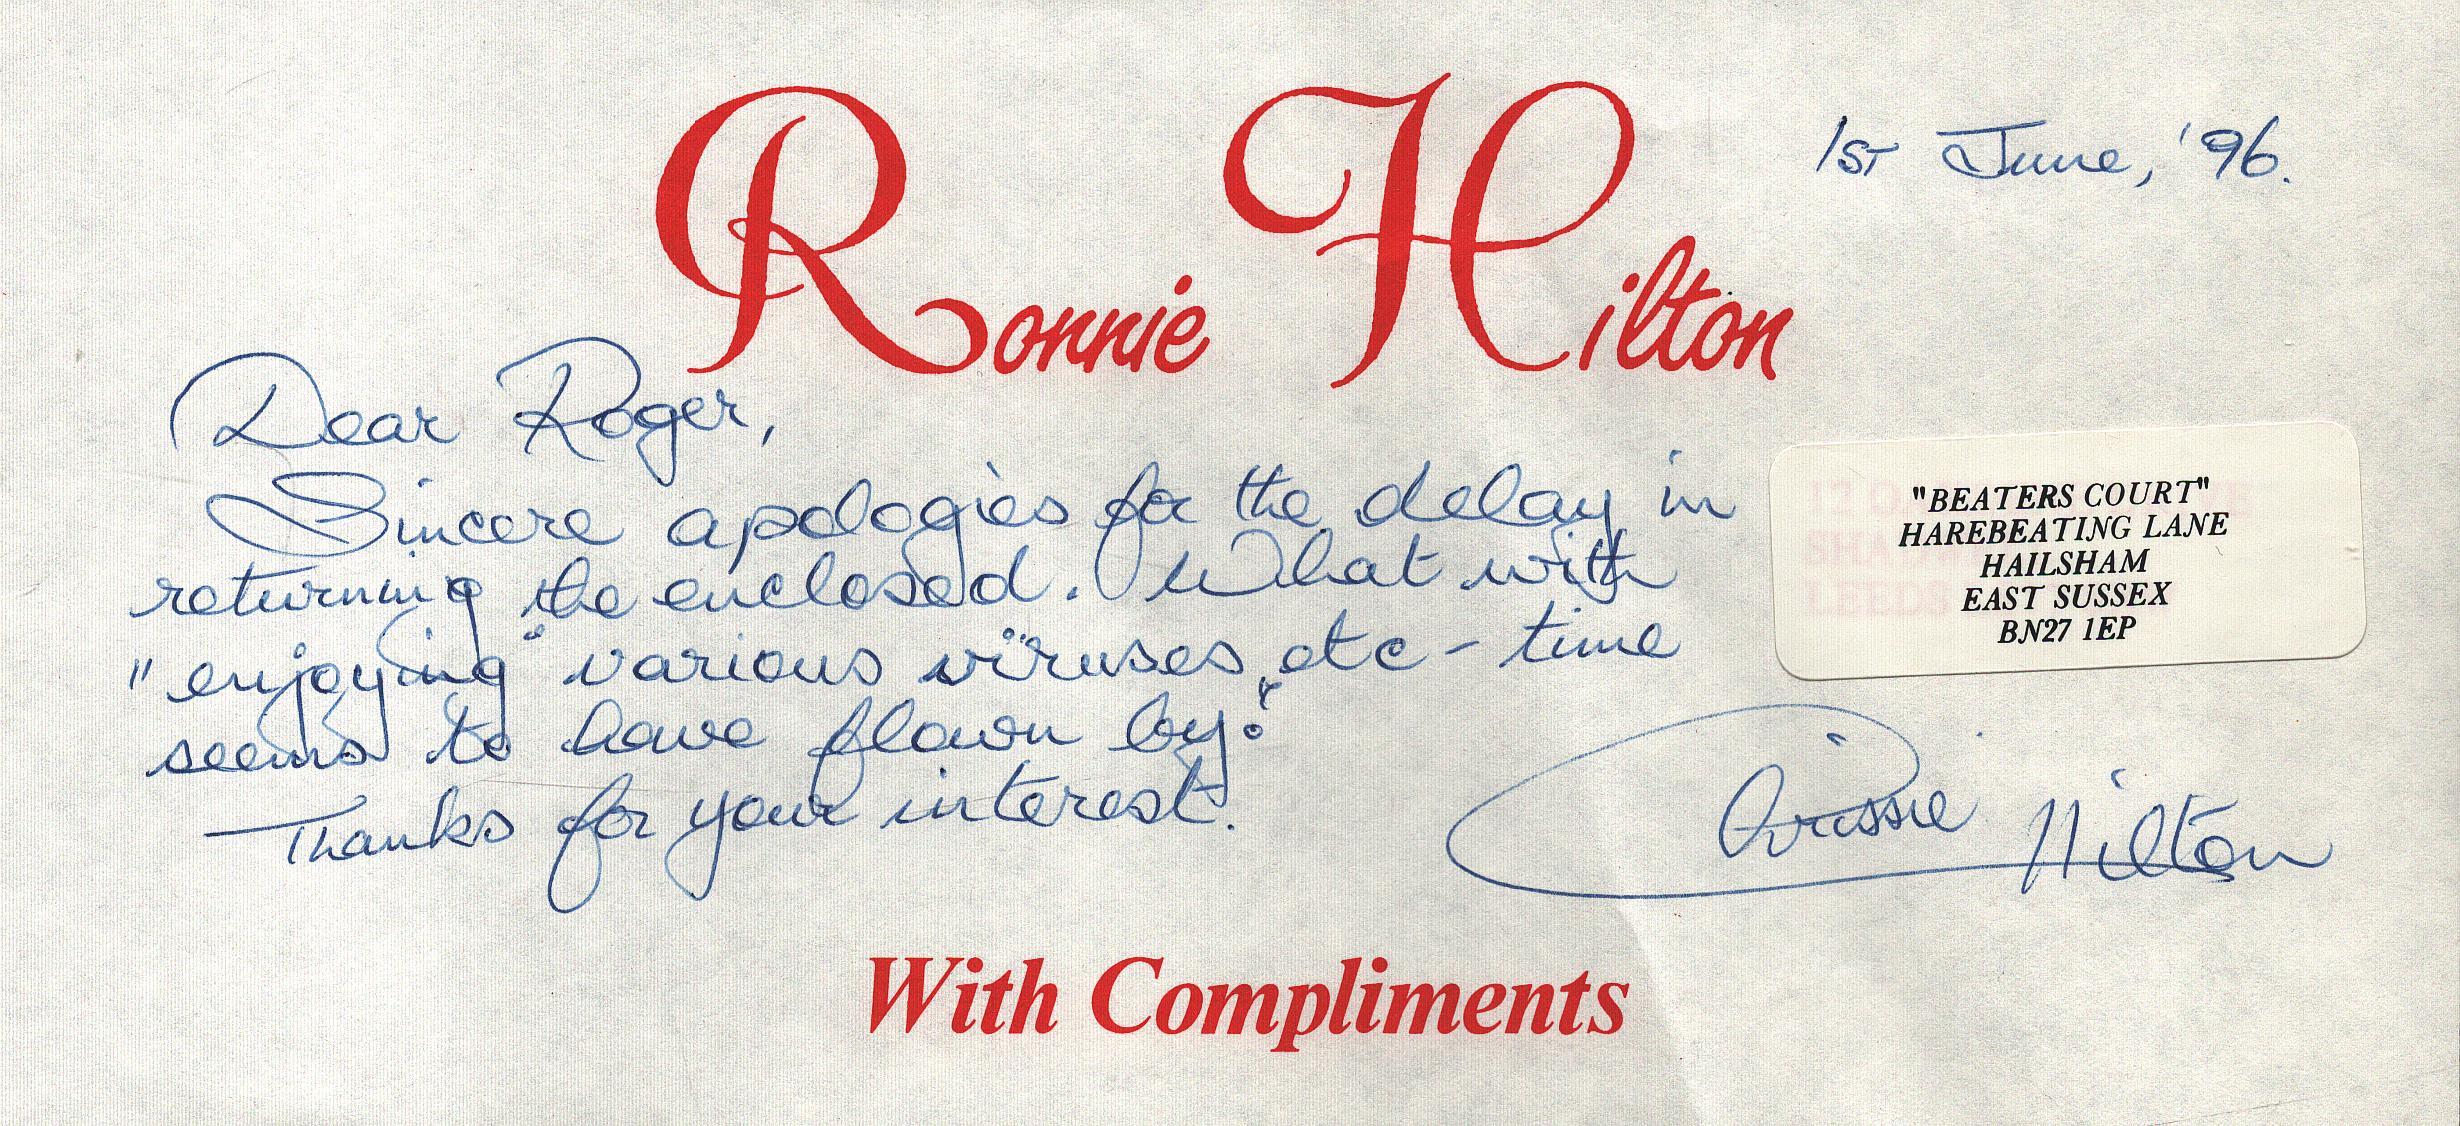 Ronnie Hilton
1ST June, '96.
Dear Roger,
Sincere apologies for the delay in
returning the enclosed. What with
"enjoying" various viruses, etc - time
seems to have flown by!
Thanks for your interest.
"BEATERS COURT"
HAREBEATING LANE
HAILSHAM
EAST SUSSEX
BN27 1EP
Chrissie Hilton
With Compliments